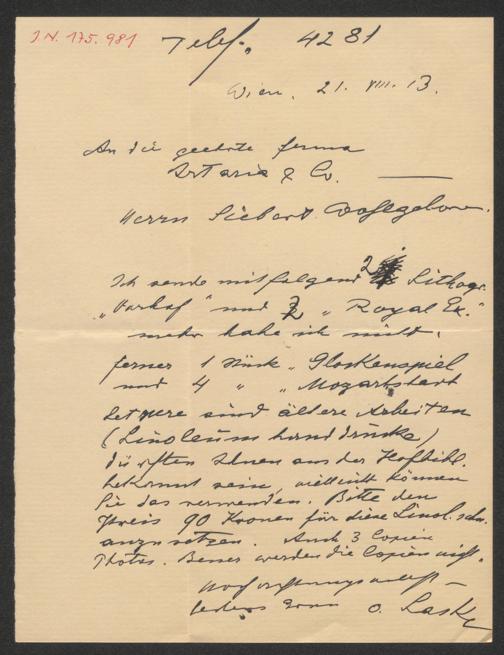 J.N. 175.981
Telef. 4281
Wien. 21. VIII. 13.
An die geehrte Firma
Artaria & Co.
Herrn Siebert Wohlgeboren.
Ich sende mitfolgend 2 Lithogr.
„Vorhof“ und 2 „Royal Ex.“
mehr habe ich nicht.
ferner 1 Stück „Glockenspiel
und 4 " „Mozartstadt
letztere sind ältere Arbeiten
(Linoleum handdrucke)
dürften Ihnen aus der Hofbibl.
bekannt sein, vielleicht können
Sie das verwenden. Bitte den
Preis 90 Kronen für diese Linol. schn.
anzusetzen. Auch 3 Copien
Photos. Besser werden die Copien nicht.
Hochachtungsvollst
O. Laske